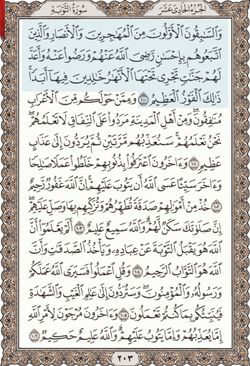 الجزء الحادي عشر سورة التوبة
والسابقون الأولون من المهاجرين والأنصار والذين
اتبعوهم بإحسان رضي الله عنهم ورضوا عنه وأعد
لهم جنات تجري تحتها الأنهار خالدين فيها أبدا
ذلك الفوز العظيم ١٠٠ وممن حولكم من الأعراب
منافقون ومن أهل المدينة مردوا على النفاق لا تعلمهم
نحن نعلمهم سنعذبهم مرتين ثم يردون إلى عذاب
عظيم ١٠١ وآخرون اعترفوا بذنوبهم خلطوا عملا صالحا
وآخر سيئا عسى الله أن يتوب عليهم إن الله غفور رحيم
١٠٢ خذ من أموالهم صدقة تطهرهم وتزكيهم بها وصل عليهم
إن صلوتك سكن لهم والله سميع عليم ١٠٣ ألم يعلموا أن
الله هو يقبل التوبة عن عباده ويأخذ الصدقات وأن
الله هو التواب الرحيم ١٠٤ وقل اعملوا فسيرى الله عملكم
ورسوله والمؤمنون وستردون إلى عالم الغيب والشهادة
فينبئكم بما كنتم تعملون ١٠٥ وآخرون مرجون لأمر الله
إما يعذبهم وإما يتوب عليهم والله عليم حكيم ١٠٦
٢٠٣